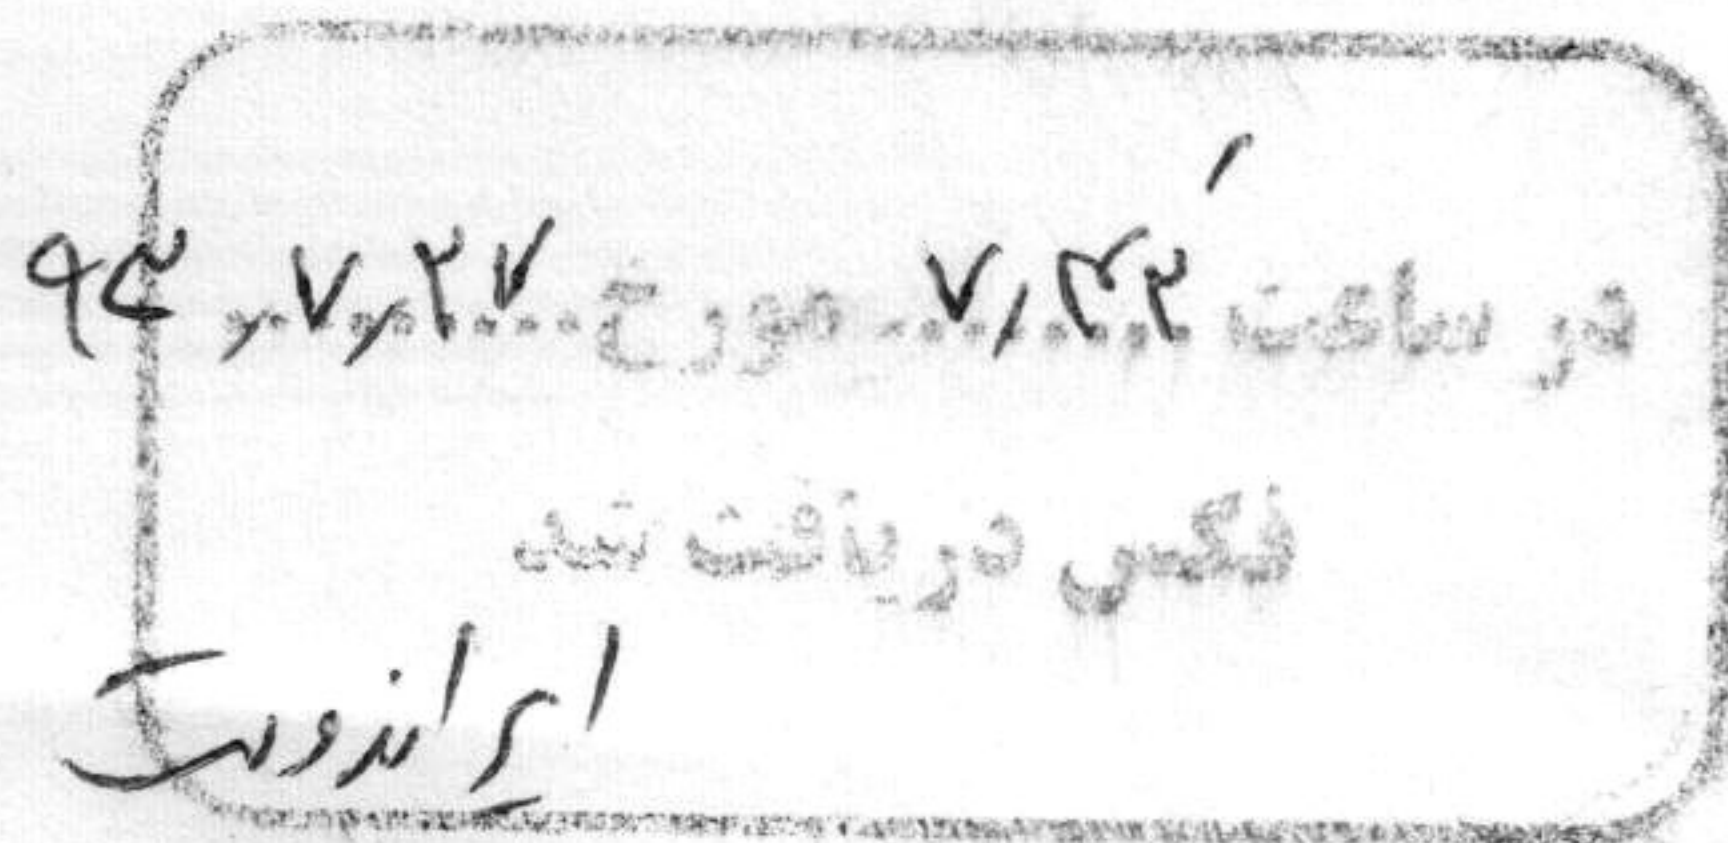 در ساعت ۷,۴۳ مورخ ۹۴,۷,۲۷
فکس دریافت شد
ایراندوست